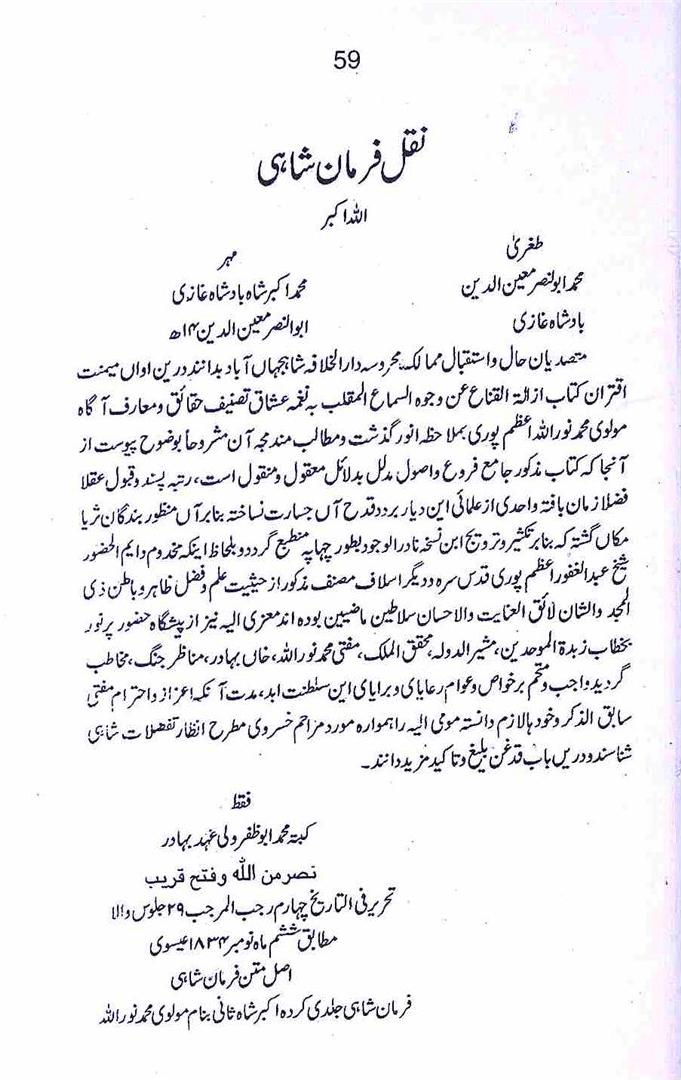 59
نقل فرمان شاہی
اللہ اکبر
طغریٰ
محمد ابوالنصر معین الدین
بادشاہ غازی
مہر
محمد اکبر شاہ بادشاہ غازی
ابوالنصر معین الدین ۱۴ھ
متصدیان حال و استقبال ممالک محروسہ دارالخلافہ شاہجہاں آباد بدانند درین اواں میمنت
اقتران کتاب ازالۃ القناع عن وجوہ السماع المقلب بہ نغمہ عشاق تصنیف حقائق و معارف آگاہ
مولوی محمد نور اللہ اعظم پوری بملاحظہ انور گذشت و مطالب مندمجہ آن مشروحاً بوضوح پیوست از
آنجا کہ کتاب مذکور جامع فروع و اصول مدلل بدلائل معقول و منقول است، رتبہ پسند و قبول عقلا
فضلا زمان یافتہ واحدی از علمائی این دیار بردد قدح آں جسارت نساختہ بنابر آں منظور بندگان ثریا
مکاں گشتہ کہ بنابر تکثیر و ترویج ابن نسخہ نادرالوجود بطور چھاپہ منطبع گردد و بلحاظ اینکہ مخدوم دایم الحضور
شیخ عبدالغفور اعظم پوری قدس سرہ ودیگر اسلاف مصنف مذکور از حیثیت علم و فضل ظاہر و باطن ذی
المجد والشان لائق العنایت والاحسان سلاطین ماضیین بودہ اند معزی الیہ نیز از پیشگاہ حضور پرنور
بخطاب زبدۃ الموحدین، مشیر الدولہ، محقق الملک، مفتی محمد نور اللہ، خاں بہادر، مناظر جنگ، مخاطب
گردید واجب و متحم برخواص و عوام رعایای و برایای این سلطنت ابد، مدت آنکہ اعزاز و احترام مفتی
سابق الذکر و خود ہالازم دانستہ مومی الیہ را ہموارہ مورد مراحم خسروی مطرح انظار تفضلات شاہی
شناسند و دریں باب قدغن بلیغ و تاکید مزید دانند۔
فقط
کبتہ محمد ابوظفر ولی عہد بہادر
نصر من اللہ وفتح قریب
تحریر فی التاریخ چہارم رجب المرجب ۲۹ جلوس والا
مطابق ششم ماہ نومبر ۱۸۳۴ عیسوی
اصل متن فرمان شاہی
فرمان شاہی جلدی کردہ اکبر شاہ ثانی بنام مولوی محمد نور اللہ